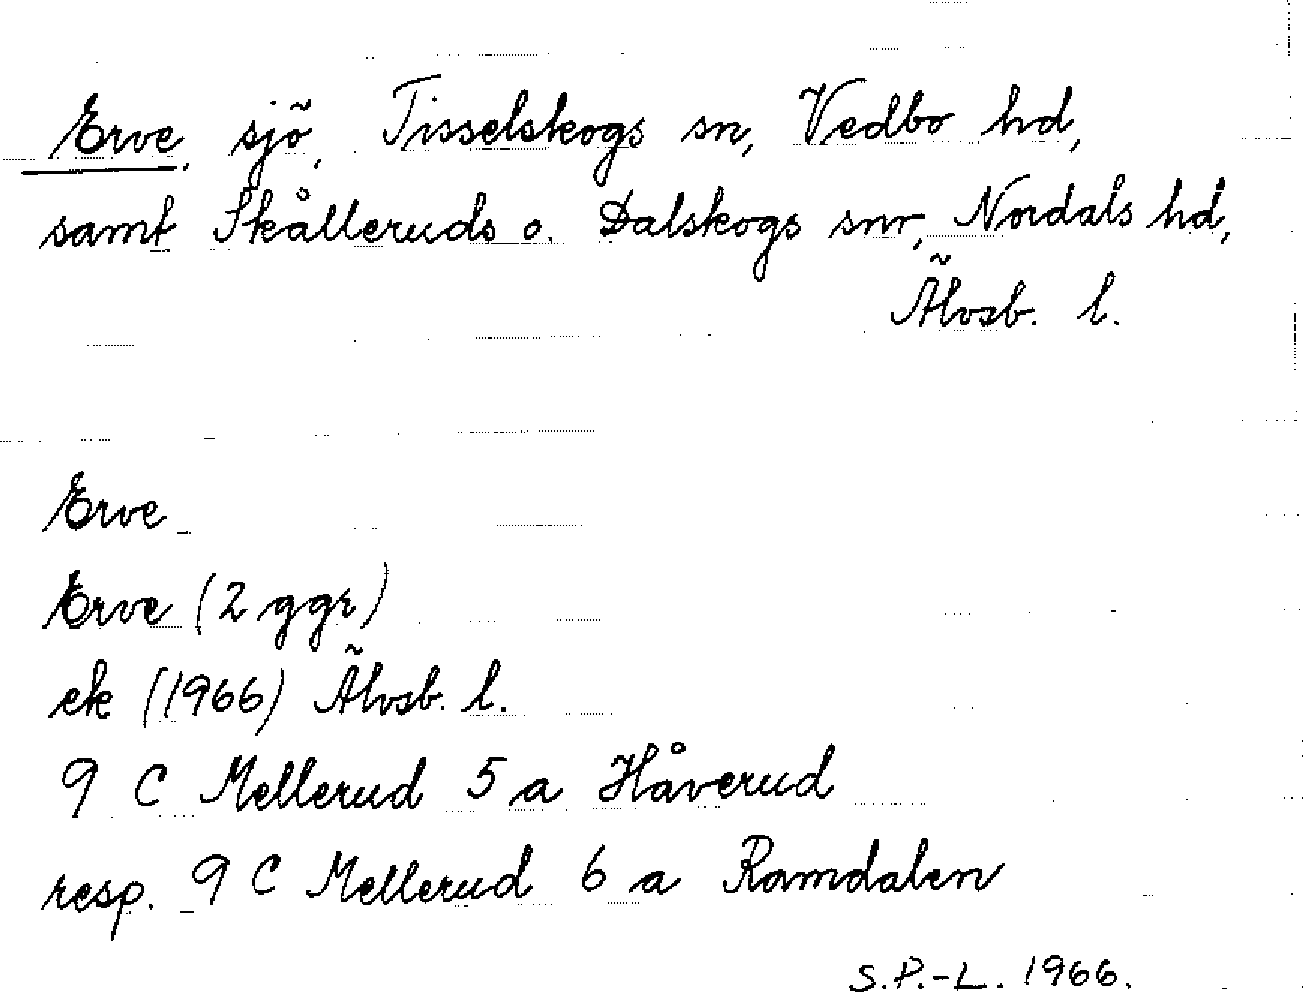 Erve, sjö, Tisselskogs sn, Vedbo hd,
samt Skålleruds o. Dalskogs snr, Nordals hd,
Älvsb. l.
Erve
Erve (2 ggr)
ek (1966) Älvsb. l.
9 C Mellerud 5 a Håverud
resp. 9 C Mellerud 6 a Ramdalen
S.P.-L. 1966.